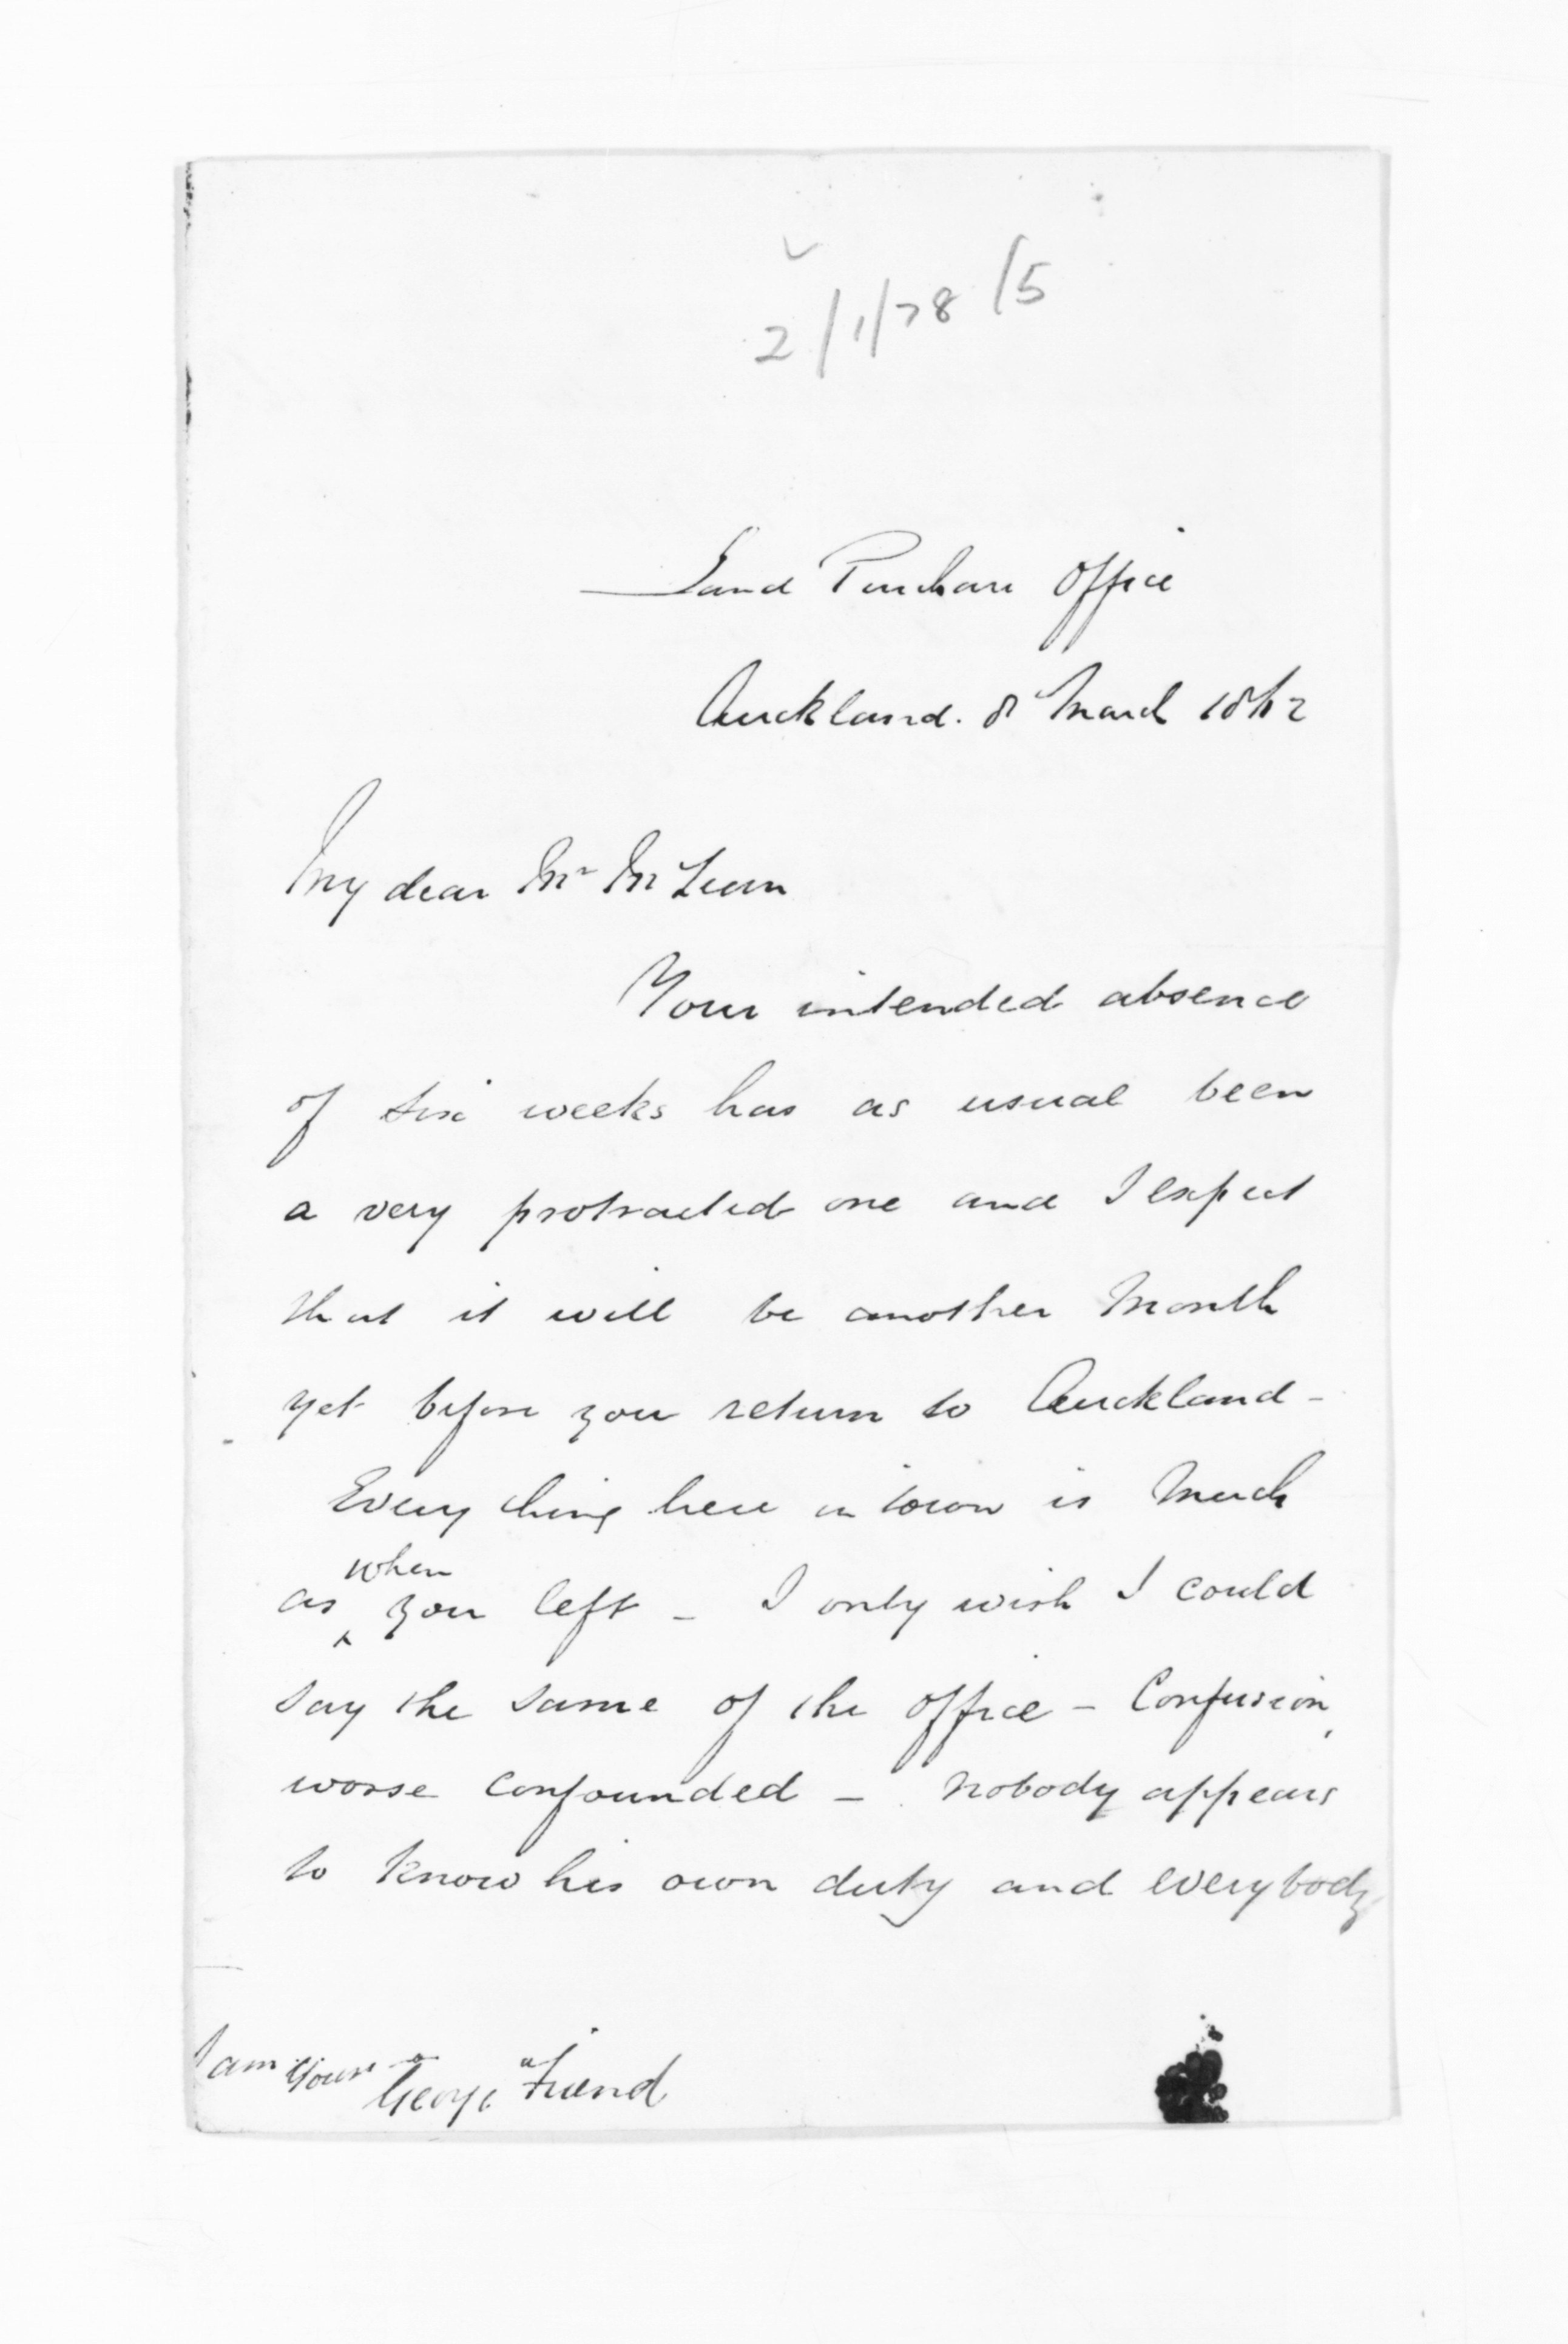 2/1/78/5
Land Purchase Office
Auckland. 8 March 1862
My dear Mr McLean
Your intended absence
of six weeks has as usual been
a very protracted one and I expect
that it will be another Month
yet before you return to Auckland -
Every thing here in town is Much
as when you left - I only wish I could
say the same of the office - Confusion,
worse confounded - nobody appears
to know his own duty and everybody
I am Yours
George Friend